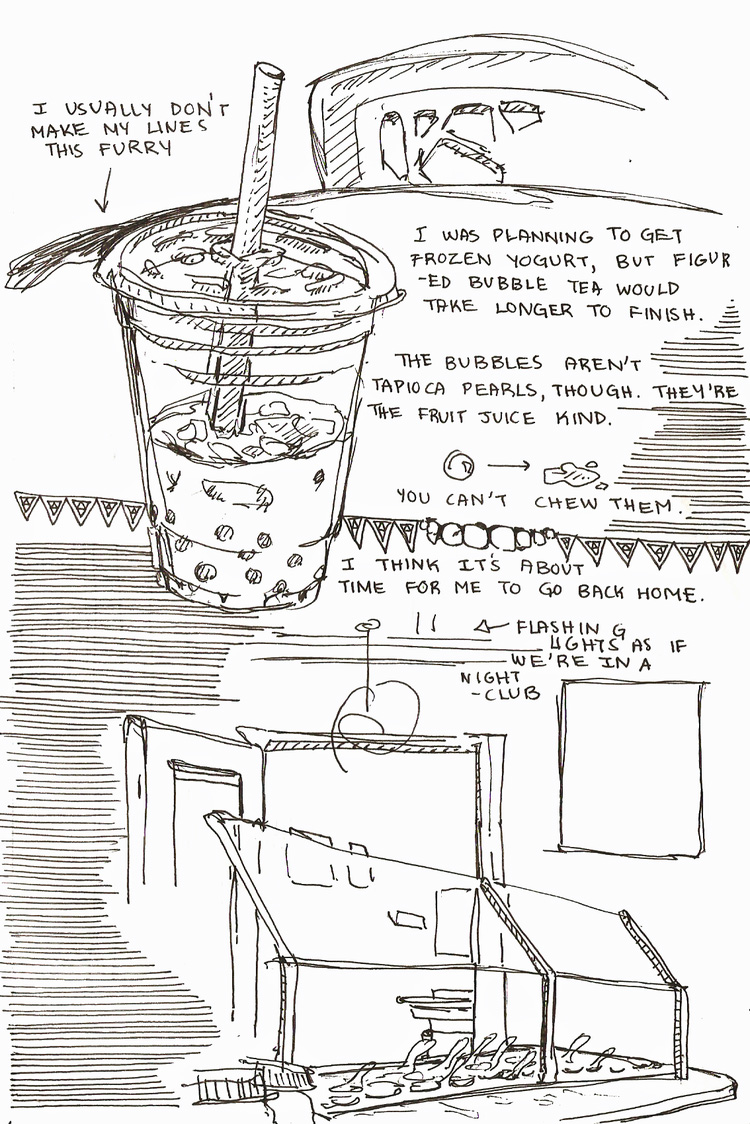 I USUALLY DON'T
MAKE MY LINES
THIS FURRY
I WAS PLANNING TO GET
FROZEN YOGURT, BUT FIGUR
-ED BUBBLE TEA WOULD
TAKE LONGER TO FINISH.
THE BUBBLES AREN'T
TAPIOCA PEARLS, THOUGH. THEY'RE
THE FRUIT JUICE KIND.
YOU CAN'T CHEW THEM.
I THINK IT'S ABOUT
TIME FOR ME TO GO BACK HOME.
FLASHING
LIGHTS AS IF
WE'RE IN A
NIGHT
-CLUB